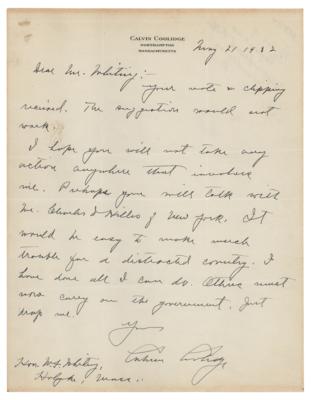 CALVIN COOLIDGE
NORTHAMPTON
MASSACHUSETTS
May 21 1932
Dear Mr. Whiting:-
Your note & clipping
received. The suggestion would not
work.
I hope you will not take any
action anywhere that involves
me. Perhaps you will talk with
Mr. Charles D Hilles of New York. It
would be easy to make much
trouble for a distracted country. I
have done all I can do. Others must
now carry on the government. Just
drop me.
Yours
Calvin Coolidge
Hon. W. F. Whiting,
Holyoke, Mass..